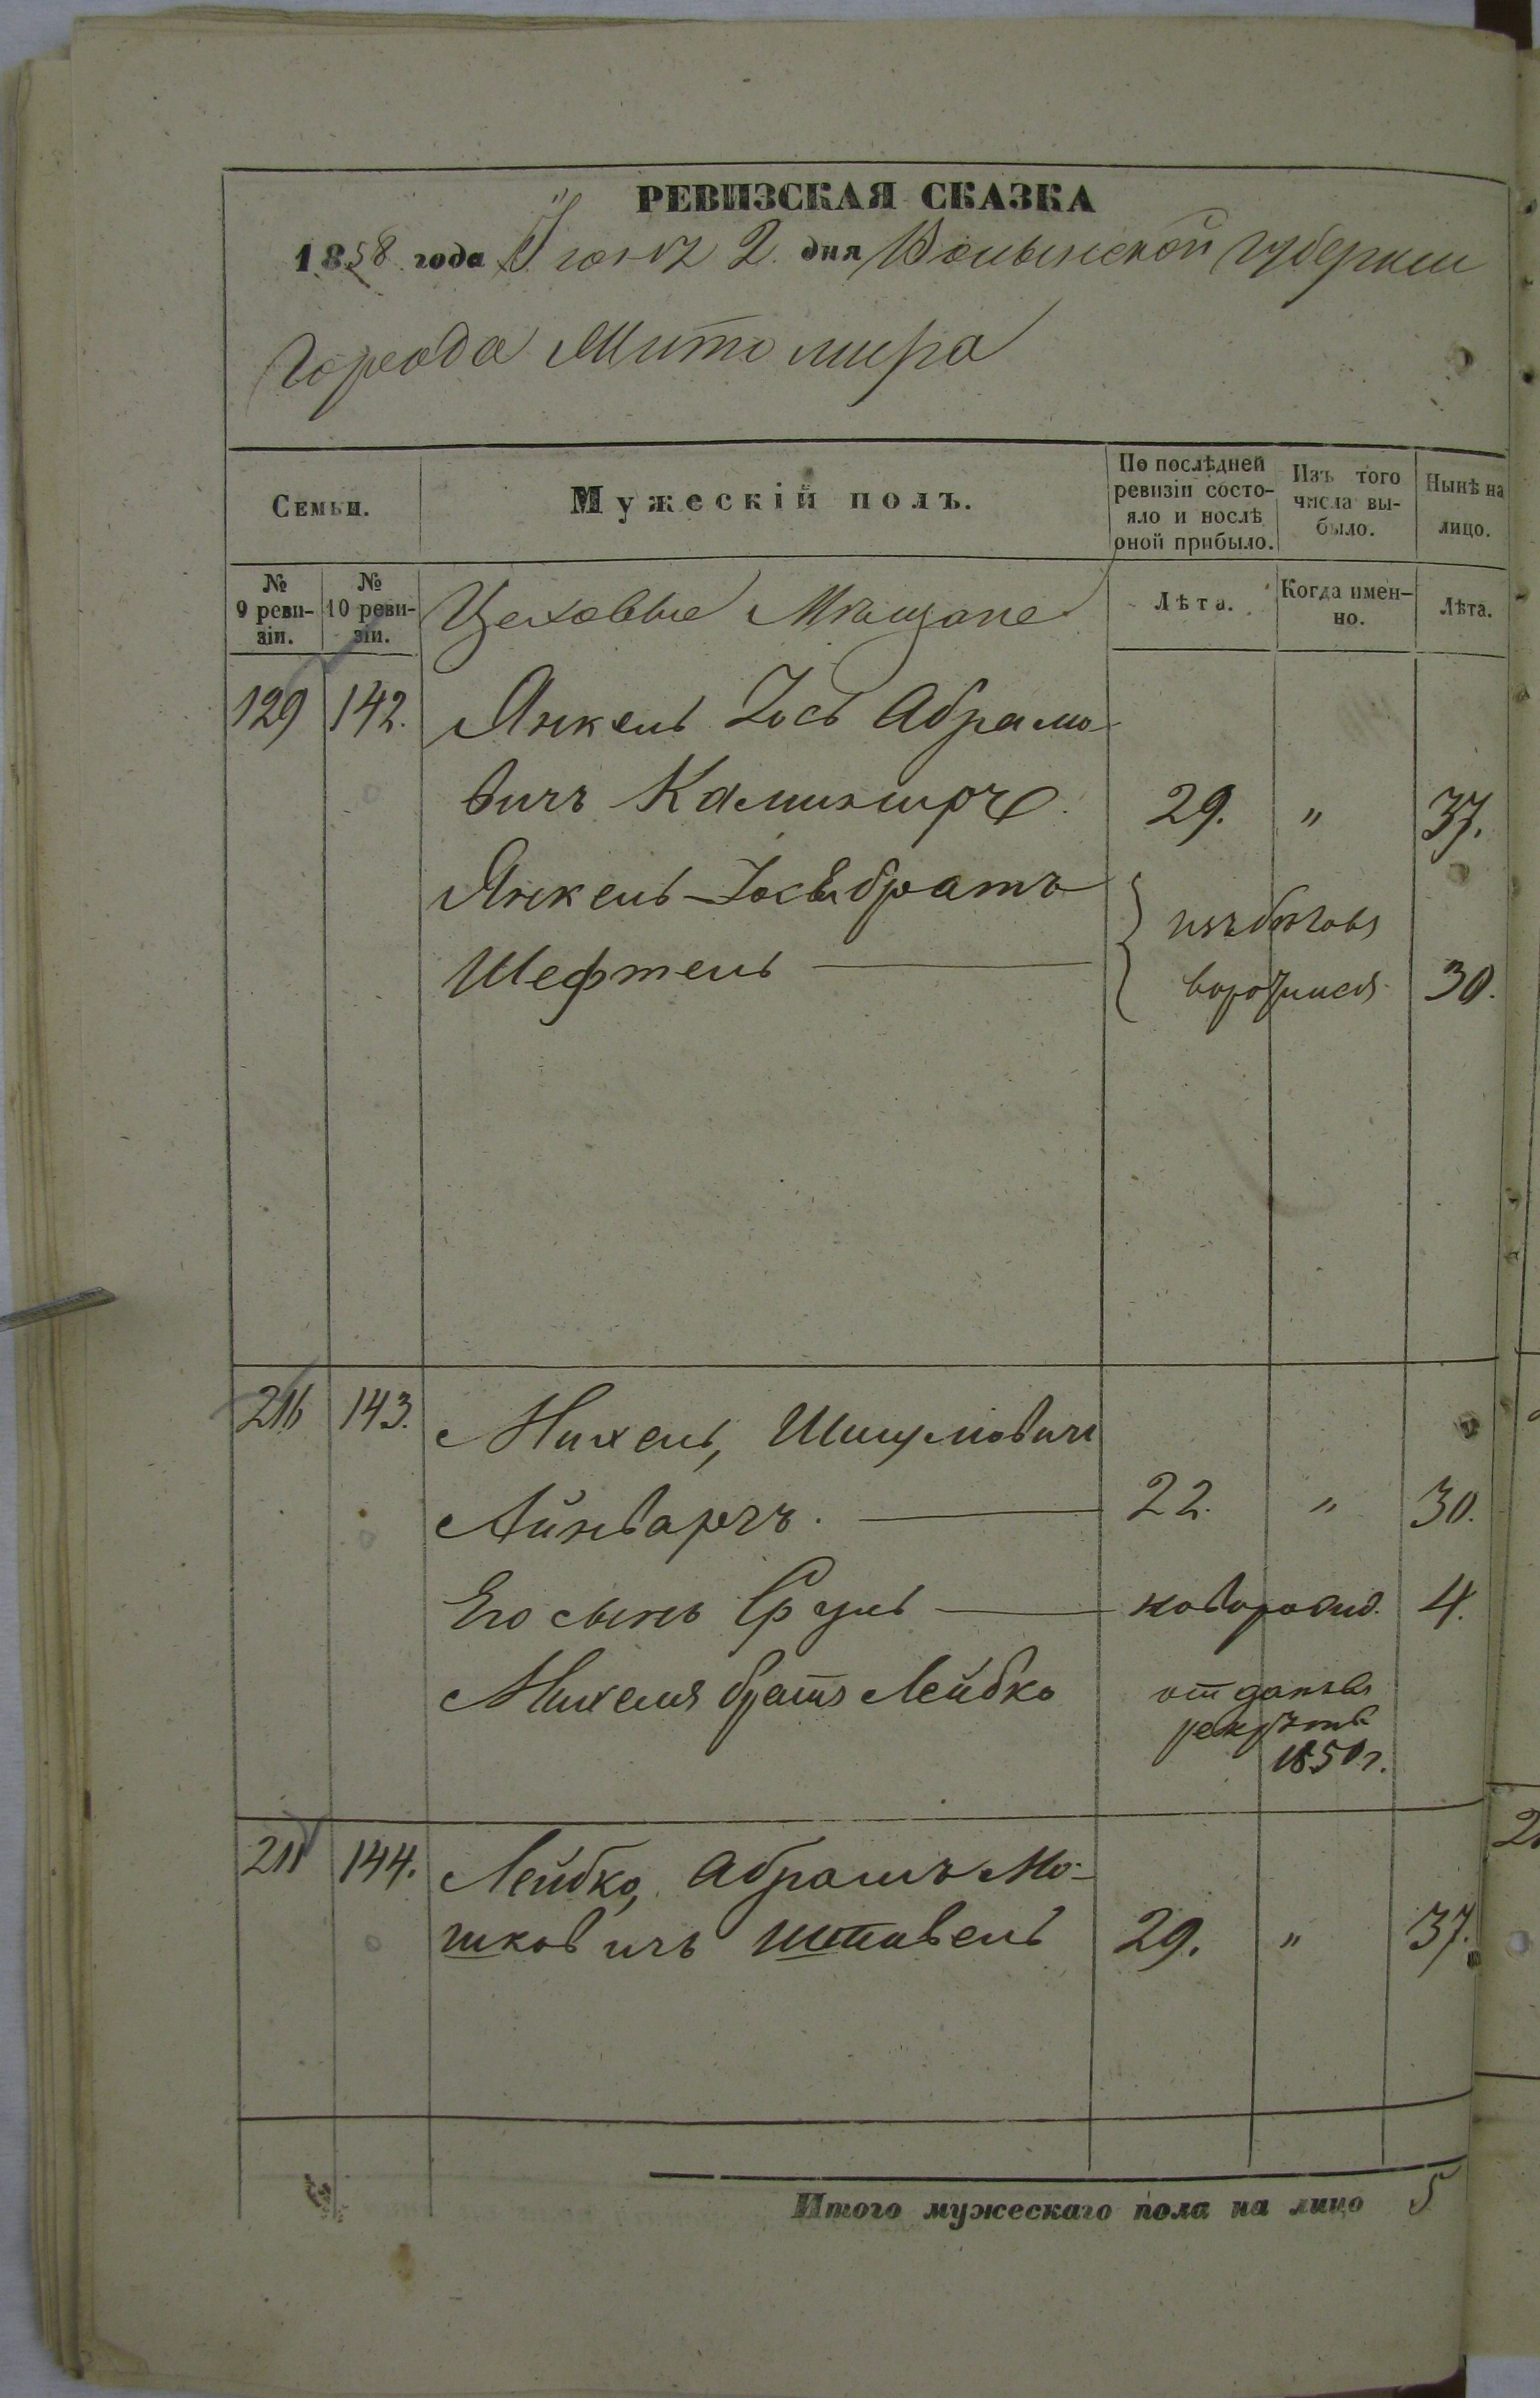 РЕВИЗСКАЯ СКАЗКА
1858 года Іюня 2 дня Волынской губерніи
Города Житомира
Семьи.
Мужескій полъ.
По послѣдней ревизіи состо-
яло и послѣ оной прибыло.
Изъ того числа вы-
было.
Нынѣ на лицо.
№ 9 реви-
зіи.
№ 10 реви-
зіи.
Цеховые Мѣщане
Лѣта.
Когда имен-
но.
Лѣта.
129 142. Янкель Іось Абрамо-
вичъ 29. " 37.
Янкель-Іося братъ
Шефтель — изъ бѣговъ
воротился 30.
216 143. Михель, Шмулиовичъ
Айнваргъ. — 22. " 30.
Его сынъ Сруль — новорожд. 4.
Михеля братъ Лейбко отданъ въ
рекруты
1850 г.
211 144. Лейбко, Абрамъ Мо-
шковичъ 29. " 37.
Итого мужескаго пола на лицо 5